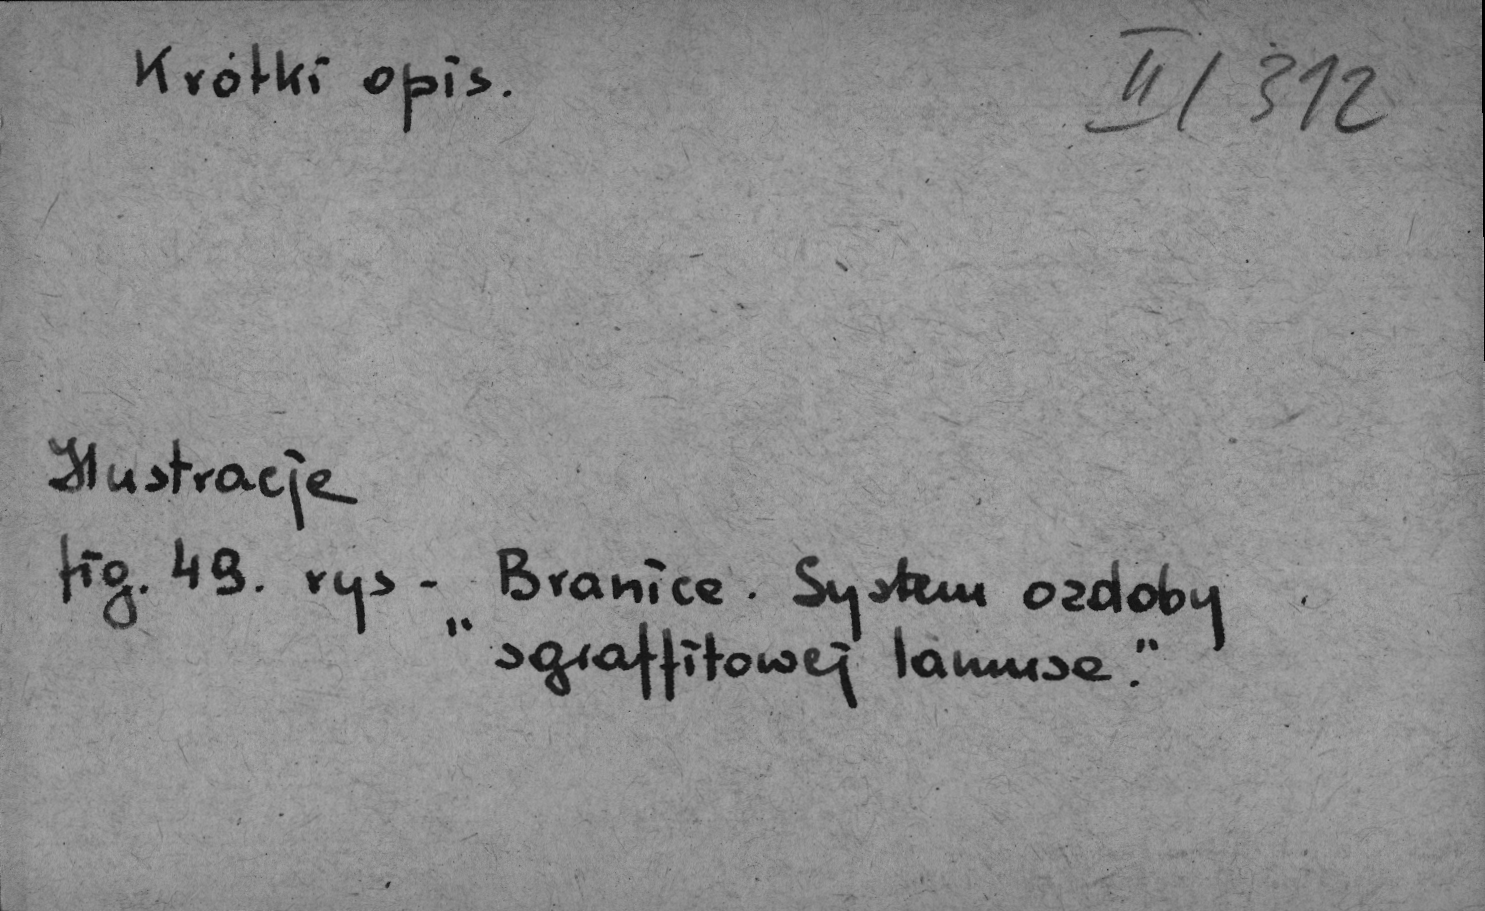 Krótki opis.
II/312
Ilustracje
fig. 49. rys - "Branice. System ozdoby
sgraffitowej lamusa."